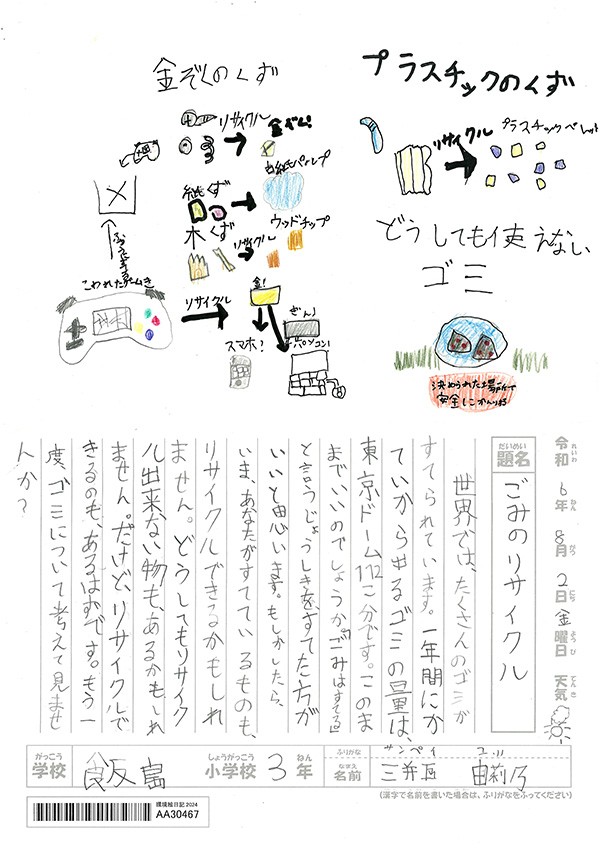 金ぞくのくず
プラスチックのくず
リサイクル
金ぞく!
リサイクル
プラスチックペレット
古紙パルプ
紙くず
木くず
ウッドチップ
リサイクル
どうしても使えない
ゴミ
こわれたゲームき
リサイクル
金!
ぎん!
スマホ?
パソコン!
決められた場所で
安全にかんりする
令和6年8月2日金曜日 天気
れいわ ねん がつ にち ようび てんき
だいめい
題名
ごみのリサイクル
世界では、たくさんのゴミが
すてられています。一年間にか
ていから出るゴミの量は、
東京ドーム112こ分です。このま
までいいのでしょうか「ごみはすてる」
と言うじょうしきをすてた方が
いいと思います。もしかしたら、
いま、あなたがすてているものも、
リサイクルできるかもしれ
ません。どうしてもリサイク
ル出来ない物も、あるかもしれ
ません。だけど、リサイクルで
きるのも、あるはずです。もう一
度、ゴミについて考えて見ませ
んか?
がっこう しょうがっこう ねん ふりがな サンペイ ユリノ
学校 飯島 小学校 3年 なまえ 名前 三瓶 由莉乃
(漢字で名前を書いた場合は、ふりがなをふってください)
環境絵日記2024
AA30467